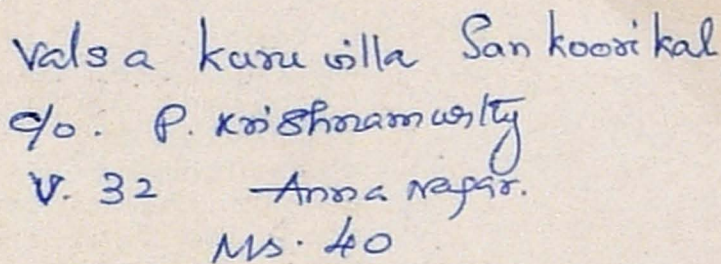 Valsa Kuruvilla Sankoorikal
c/o. P. Krishnamurty
V. 32 Anna Nagar.
Ms. 40